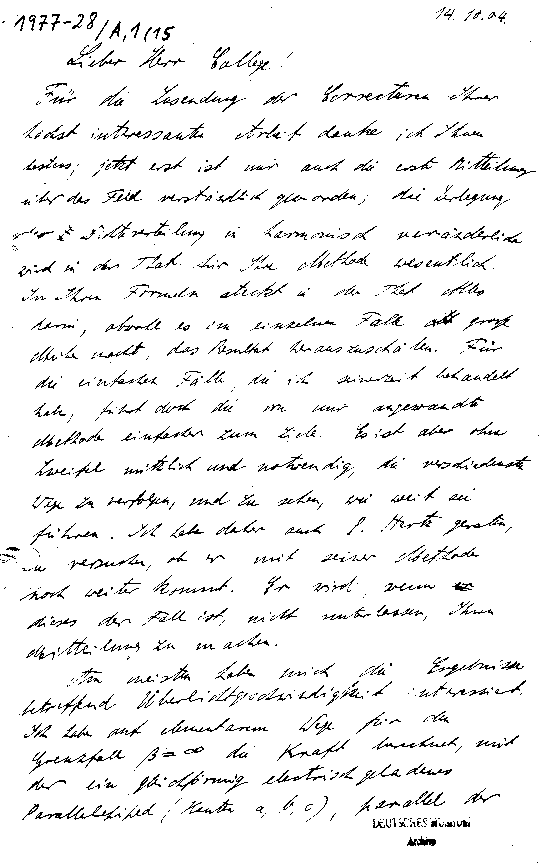 1977-28/A,1(15
14.10.04.
Lieber Herr College!
Für die Zusendung der Correcturen Ihrer
höchst interessanten Arbeit danke ich Ihnen
bestens; jetzt erst ist mir auch die erste Mitteilung
über das Feld verständlich geworden; die Zerlegung
Dichteverteilung in harmonisch veränderliche
wird in der That für Ihre Methode wesentlich.
In Ihren Formeln steckt in der That Alles
darin, obwohl es im einzelnen Falle große
Mühe macht, das Resultat herauszuschälen. Für
die einfachen Fälle, die ich seinerzeit behandelt
habe, führt doch die von mir angewandte
Methode einfacher zum Ziele. Es ist aber ohne
Zweifel nützlich und notwendig, die verschiedensten
Wege zu verfolgen, und zu sehen, wie weit sie
führen. Ich habe daher auch P. Hertz geraten,
zu versuchen, ob er mit seiner Methode
noch weiter kommt. Er wird, wenn
dieses der Fall ist, nicht unterlassen, Ihnen
Mitteilung zu machen.
Am meisten haben mich die Ergebnisse
betreffend Überlichtgeschwindigkeit interessiert.
Ich habe auf elementarem Wege für den
Grenzfall β=∞ die Kraft berechnet, mit
der ein gleichförmig electrisch geladenes
Parallelepiped (Kanten a, b, c), parallel der
DEUTSCHES MUSEUM
Archiv